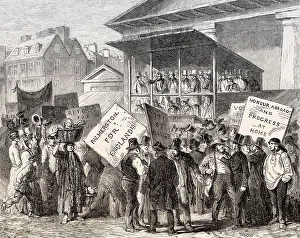 PALMERSTON
FOR
ENGLAND!!
VO
HONOUR ABROAD
AND
PROGRESS
AT
HOME